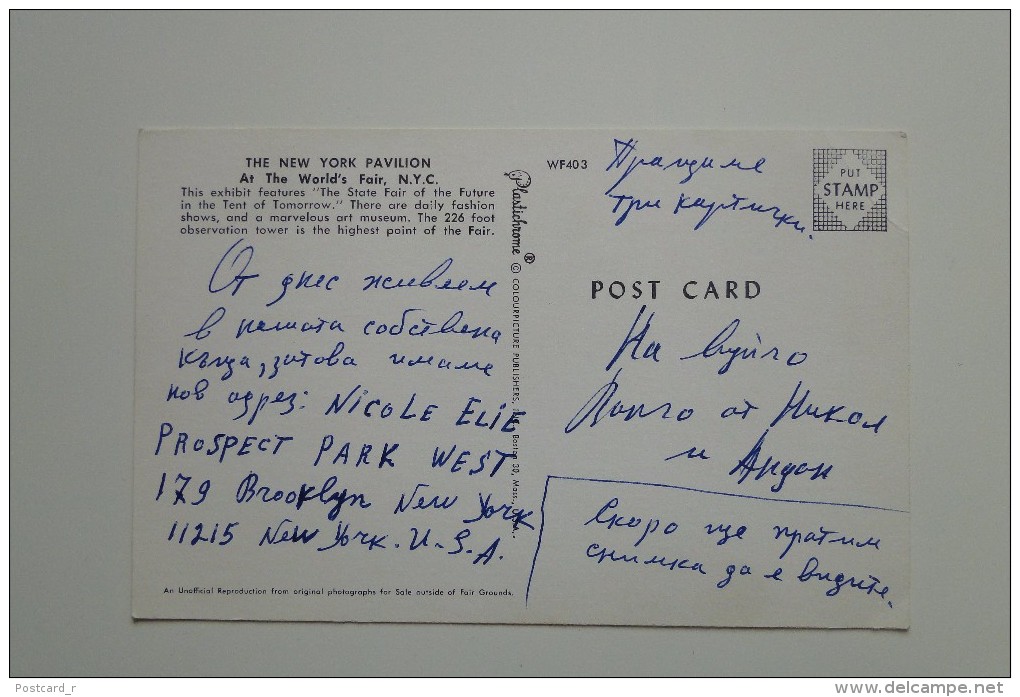 THE NEW YORK PAVILION
At The World's Fair, N.Y.C.
This exhibit features "The State Fair of the Future
in the Tent of Tomorrow." There are daily fashion
shows, and a marvelous art museum. The 226 foot
observation tower is the highest point of the Fair.
От днес живеем
в нашата собствена
къща, затова имаме
нов адрез: NICOLE ELIE
PROSPECT PARK WEST
179 Brooklyn New York
11215 New York. U.S.A.
An Unofficial Reproduction from original photographs for Sale outside of Fair Grounds.
Plastichrome ® © COLOURPICTURE PUBLISHERS, Boston 30, Mass.,
WF403
Пращаме
три картички.
PUT
STAMP
HERE
POST CARD
На вуйчо
от Никол
и Андон
Скоро ще пратим
снимка да я видите.
Postcard_r
delcampe.net